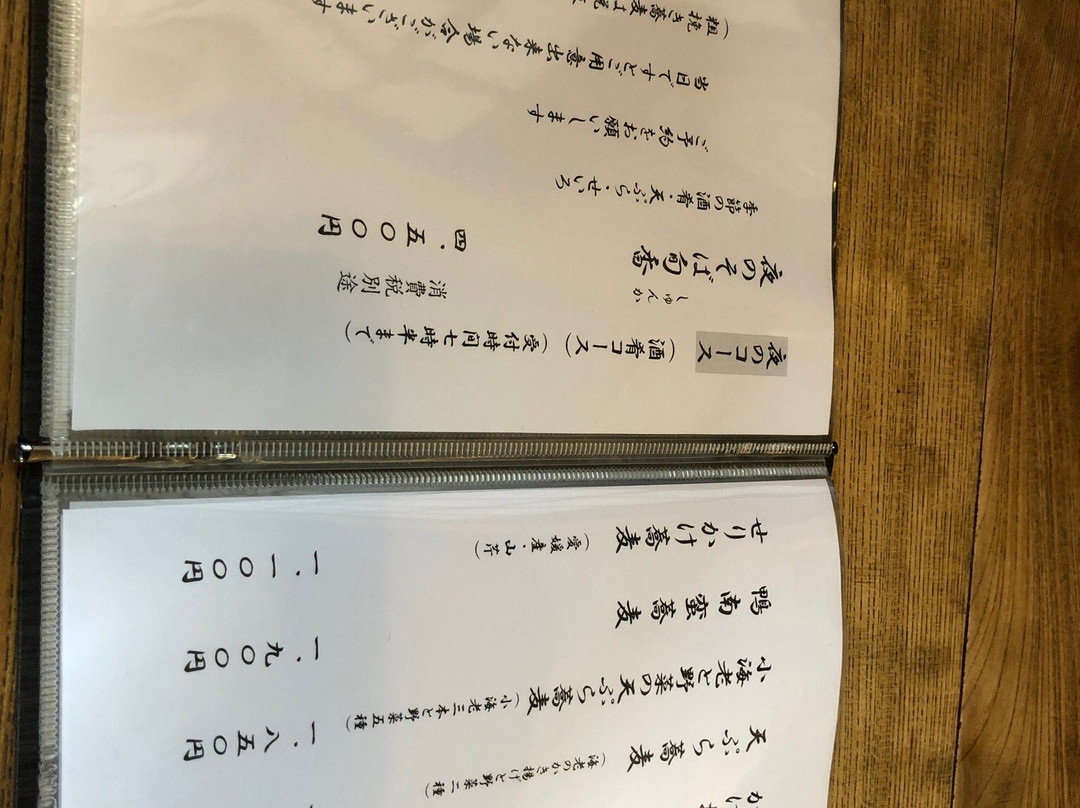 天ぷら蕎麦（海老のかき揚げと野菜二種）
小海老と野菜の天ぷら蕎麦（小海老三本と野菜五種） 一.八五〇円
鴨南蛮蕎麦 一.九〇〇円
せりかけ蕎麦（愛媛産・山芹） 一.一〇〇円
夜のコース（酒肴コース）（受付時間七時半まで）
しゅんか
消費税別途
夜のそば旬香 四.五〇〇円
季節の酒肴・天ぷら・せいろ
ご予約をお願いします
当日ですとご用意出来ない場合がございます
（粗挽き蕎麦